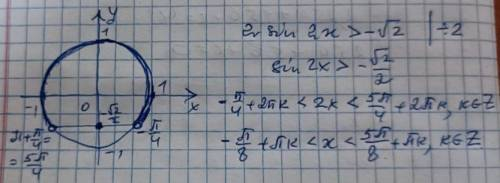 y
1
-1
0
1
x
-√2/2
π+π/4=
=5π/4
-π/4
-1
2 sin 2x > -√2 | ÷2
sin 2x > -√2/2
-π/4 + 2πk < 2x < 5π/4 + 2πk, k∈Z
-π/8 + πk < x < 5π/8 + πk, k∈Z